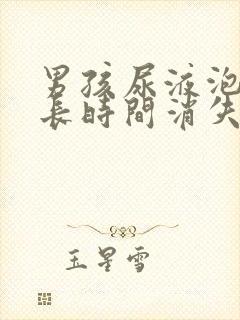 男孩尿液泡
長時間消失
玉星雪